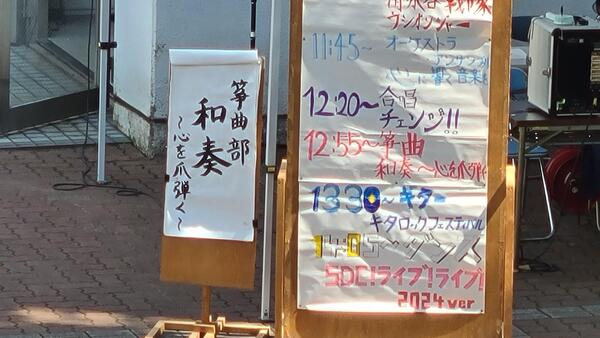 箏曲部
和奏
～心を爪弾く～
ウシオンジャー
11:45～オーケストラ
アンサンブル
に響く音楽
12:20～合唱
チェンジ!!
12:55～箏曲
和奏～心を爪弾く
13:30～ギター
ギタロックフェスティバル
14:05～ダンス
SDC!ライブ!ライブ!
2024 ver